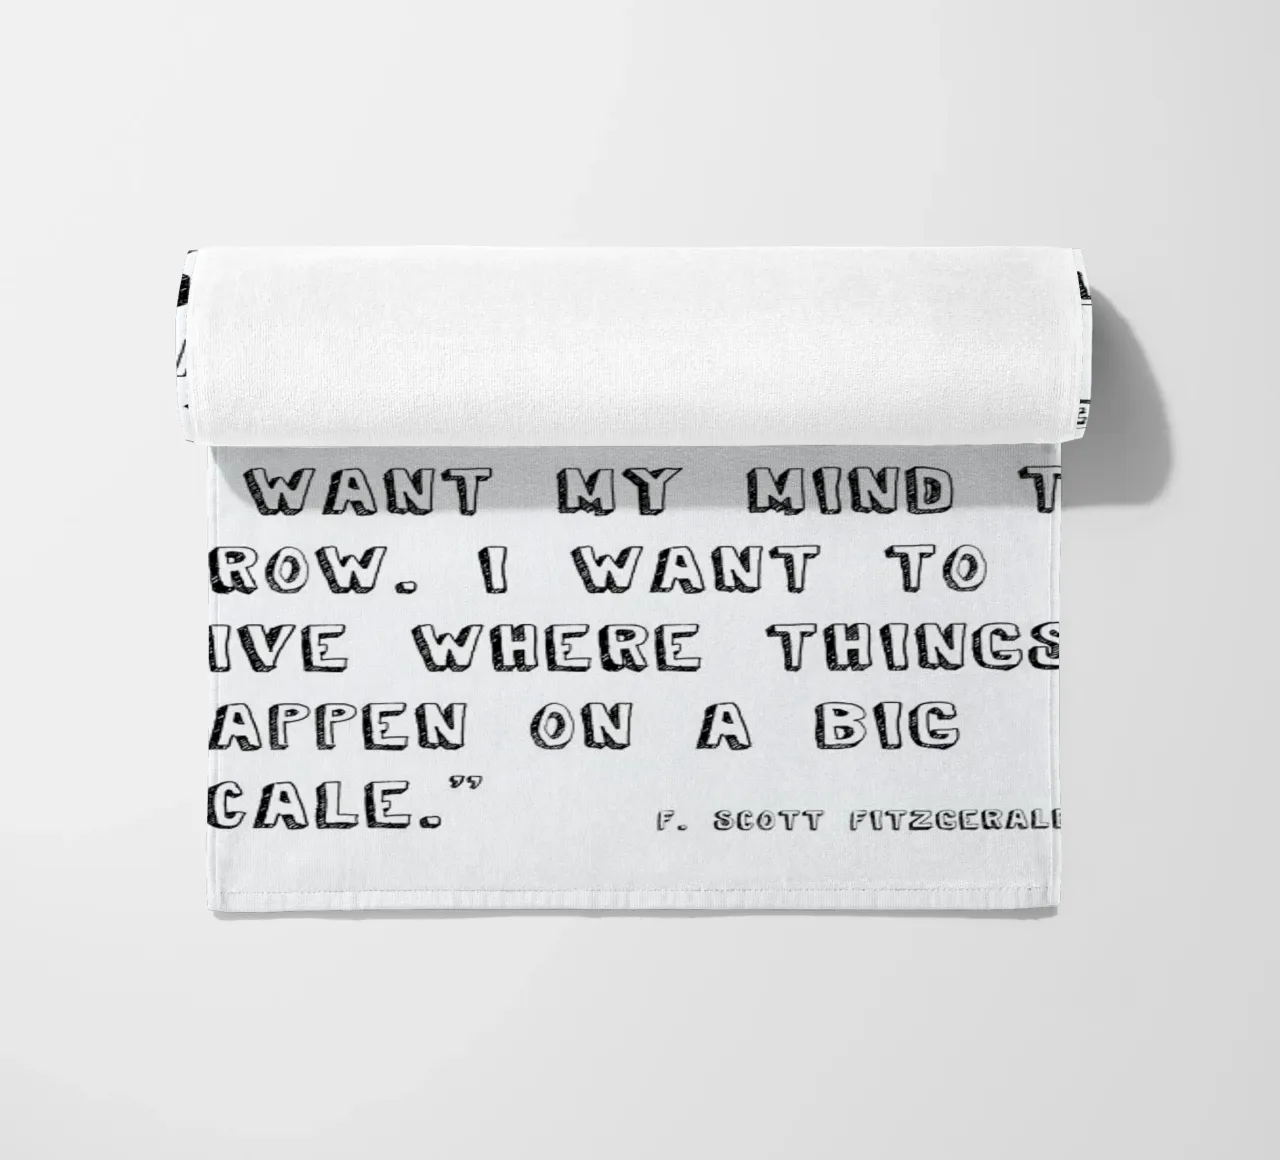 WANT MY MIND T
ROW. I WANT TO
IVE WHERE THINGS
APPEN ON A BIG
CALE.”
F. SCOTT FITZGERALD